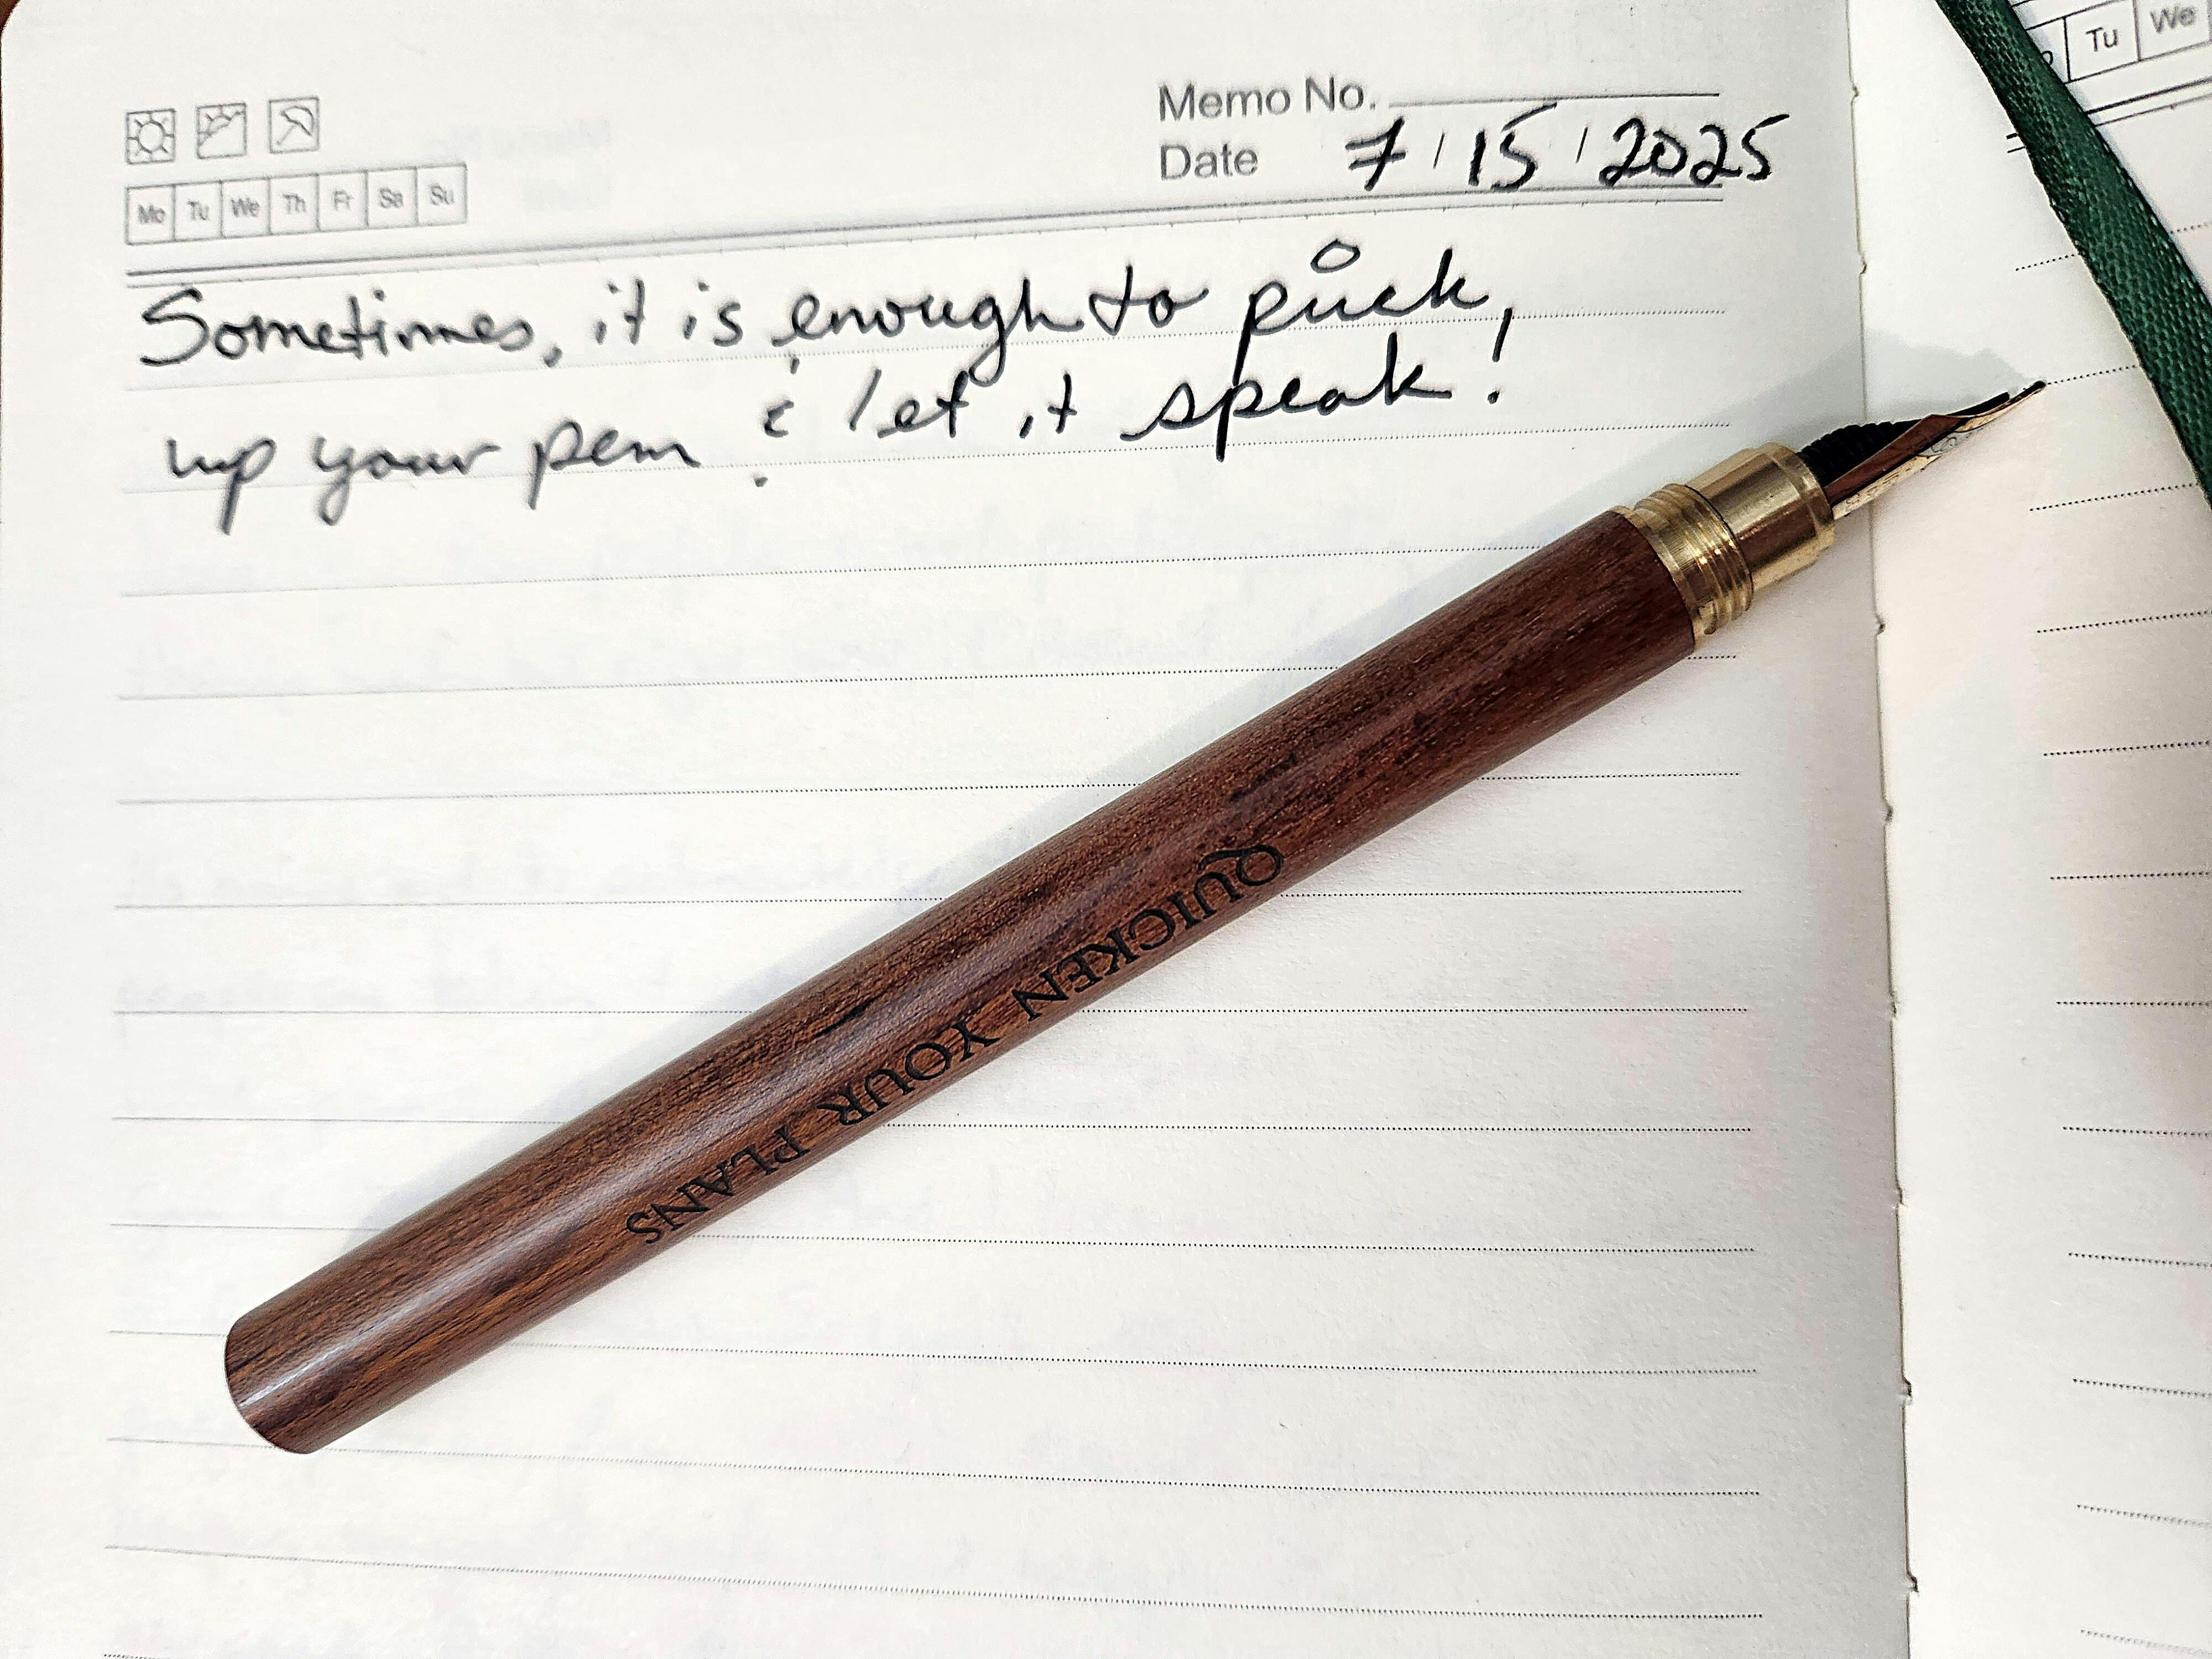 Memo No.
Date 7/15/2025
Mo Tu We Th Fr Sa Su
Sometimes, it is enough to pick,
up your pen & let it speak!
QUICKEN YOUR PLANS
Tu We